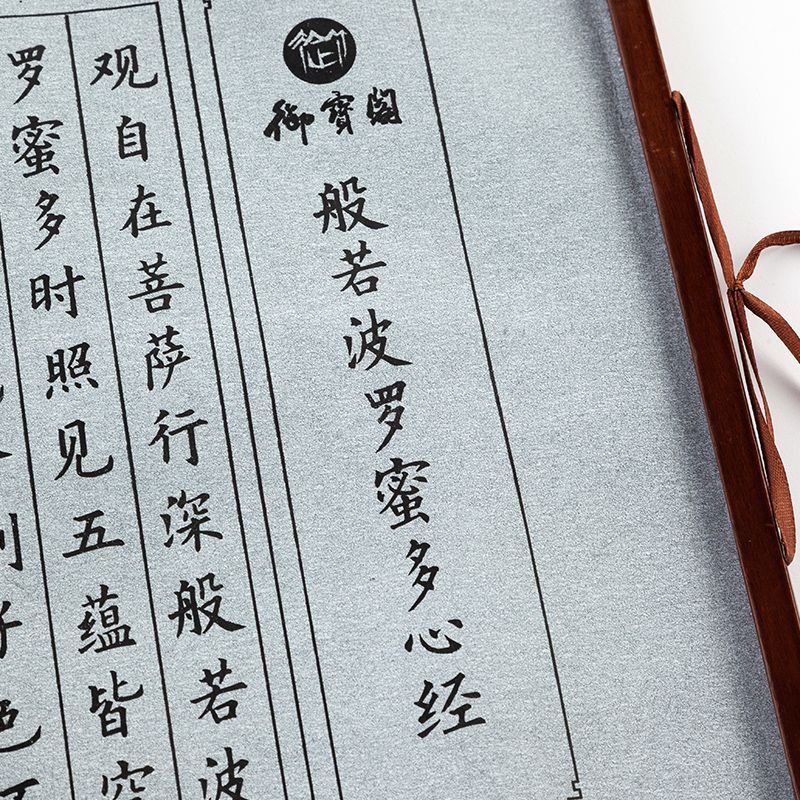 御寶閣
般若波罗蜜多心经
观自在菩萨行深般若波
罗蜜多时照见五蕴皆空